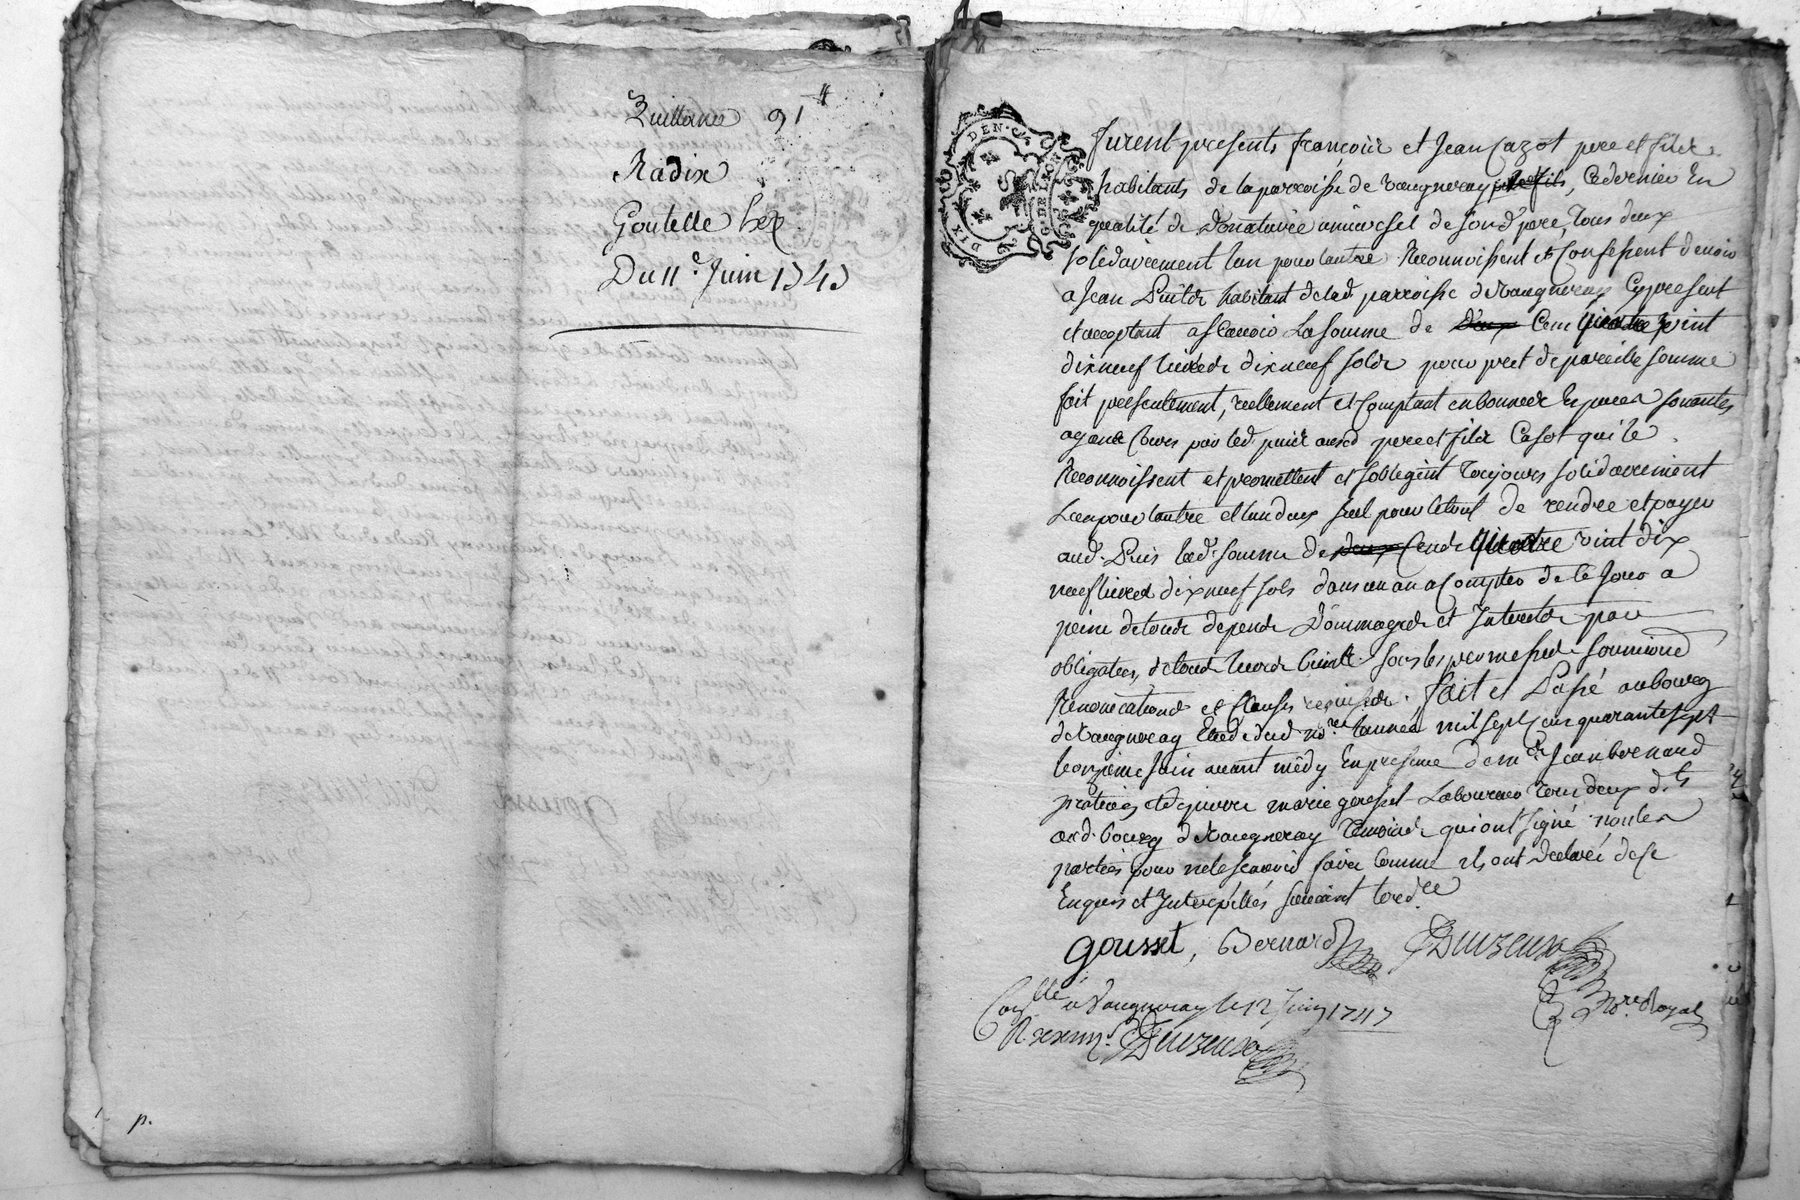 Quittance 91 ₶
Radix
Goutelle
Du 11e Juin 1747
p.
DIX DEN. G. DE LION
furent presents françois et Jean Cazot pere et fils
habitants de la parroisse de vaugneray, ce dernier En
qualité de Donataire universel de sond. pere, tous deux
solidairement lun pour lautre Reconnoissent et Confessent devoir
a Jean Puits habitant de lad. parroisse de Vaugneray Cy present
et acceptant a scavoir La somme de Cent quatre vint
dix neuf livres dix neuf sols pour pret de pareille somme
fait presentement, reellement et Comptant en bonnes Especes sonantes
ayants Cours par led. puits auxd. pere et fils Casot qui le
Reconnoissent et promettent et soblegent toujours solidairement
Lun pour lautre et lun deux seul pour le tout de rendre et payer
aud. Puis lad. somme de Cent quatre vint dix
neuf livres dix neuf sols dans un an a Compter de ce Jour a
peine de tous depends Dommages et Interets par
obligations, de tous leurs biens sous les promesses soumissions
Renonciations et Clauses requises. fait et Passé au bourg
de Vaugneray Etude dud. nore. lannée mil sept cent quarante sept
le onzieme Juin avant midy En presence de me. Jean bernard
praticien et de pierre marie gousset Laboureur tous deux dts
aud. bourg de Vaugneray temoins qui ont signé non les
parties pour ne le scavoir faire Comme ils ont declaré de ce
Enquis et Interpellés suivant lordce.
gousset, Bernard
Conllé a Vaugneray le 12 Juin 1747
Nore. Royal